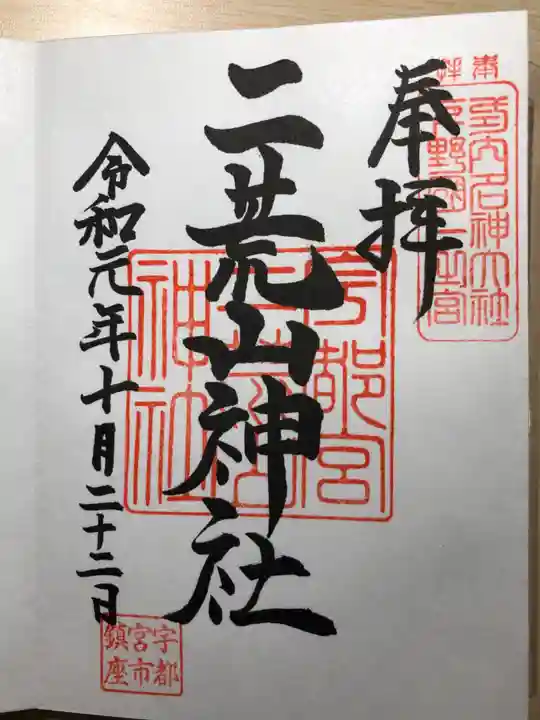 奉拝
式内名神大社
下野國一之宮
奉拝
二荒山神社
宇都宮
二荒山
神社
令和元年十月二十二日
宇都
宮市
鎮座